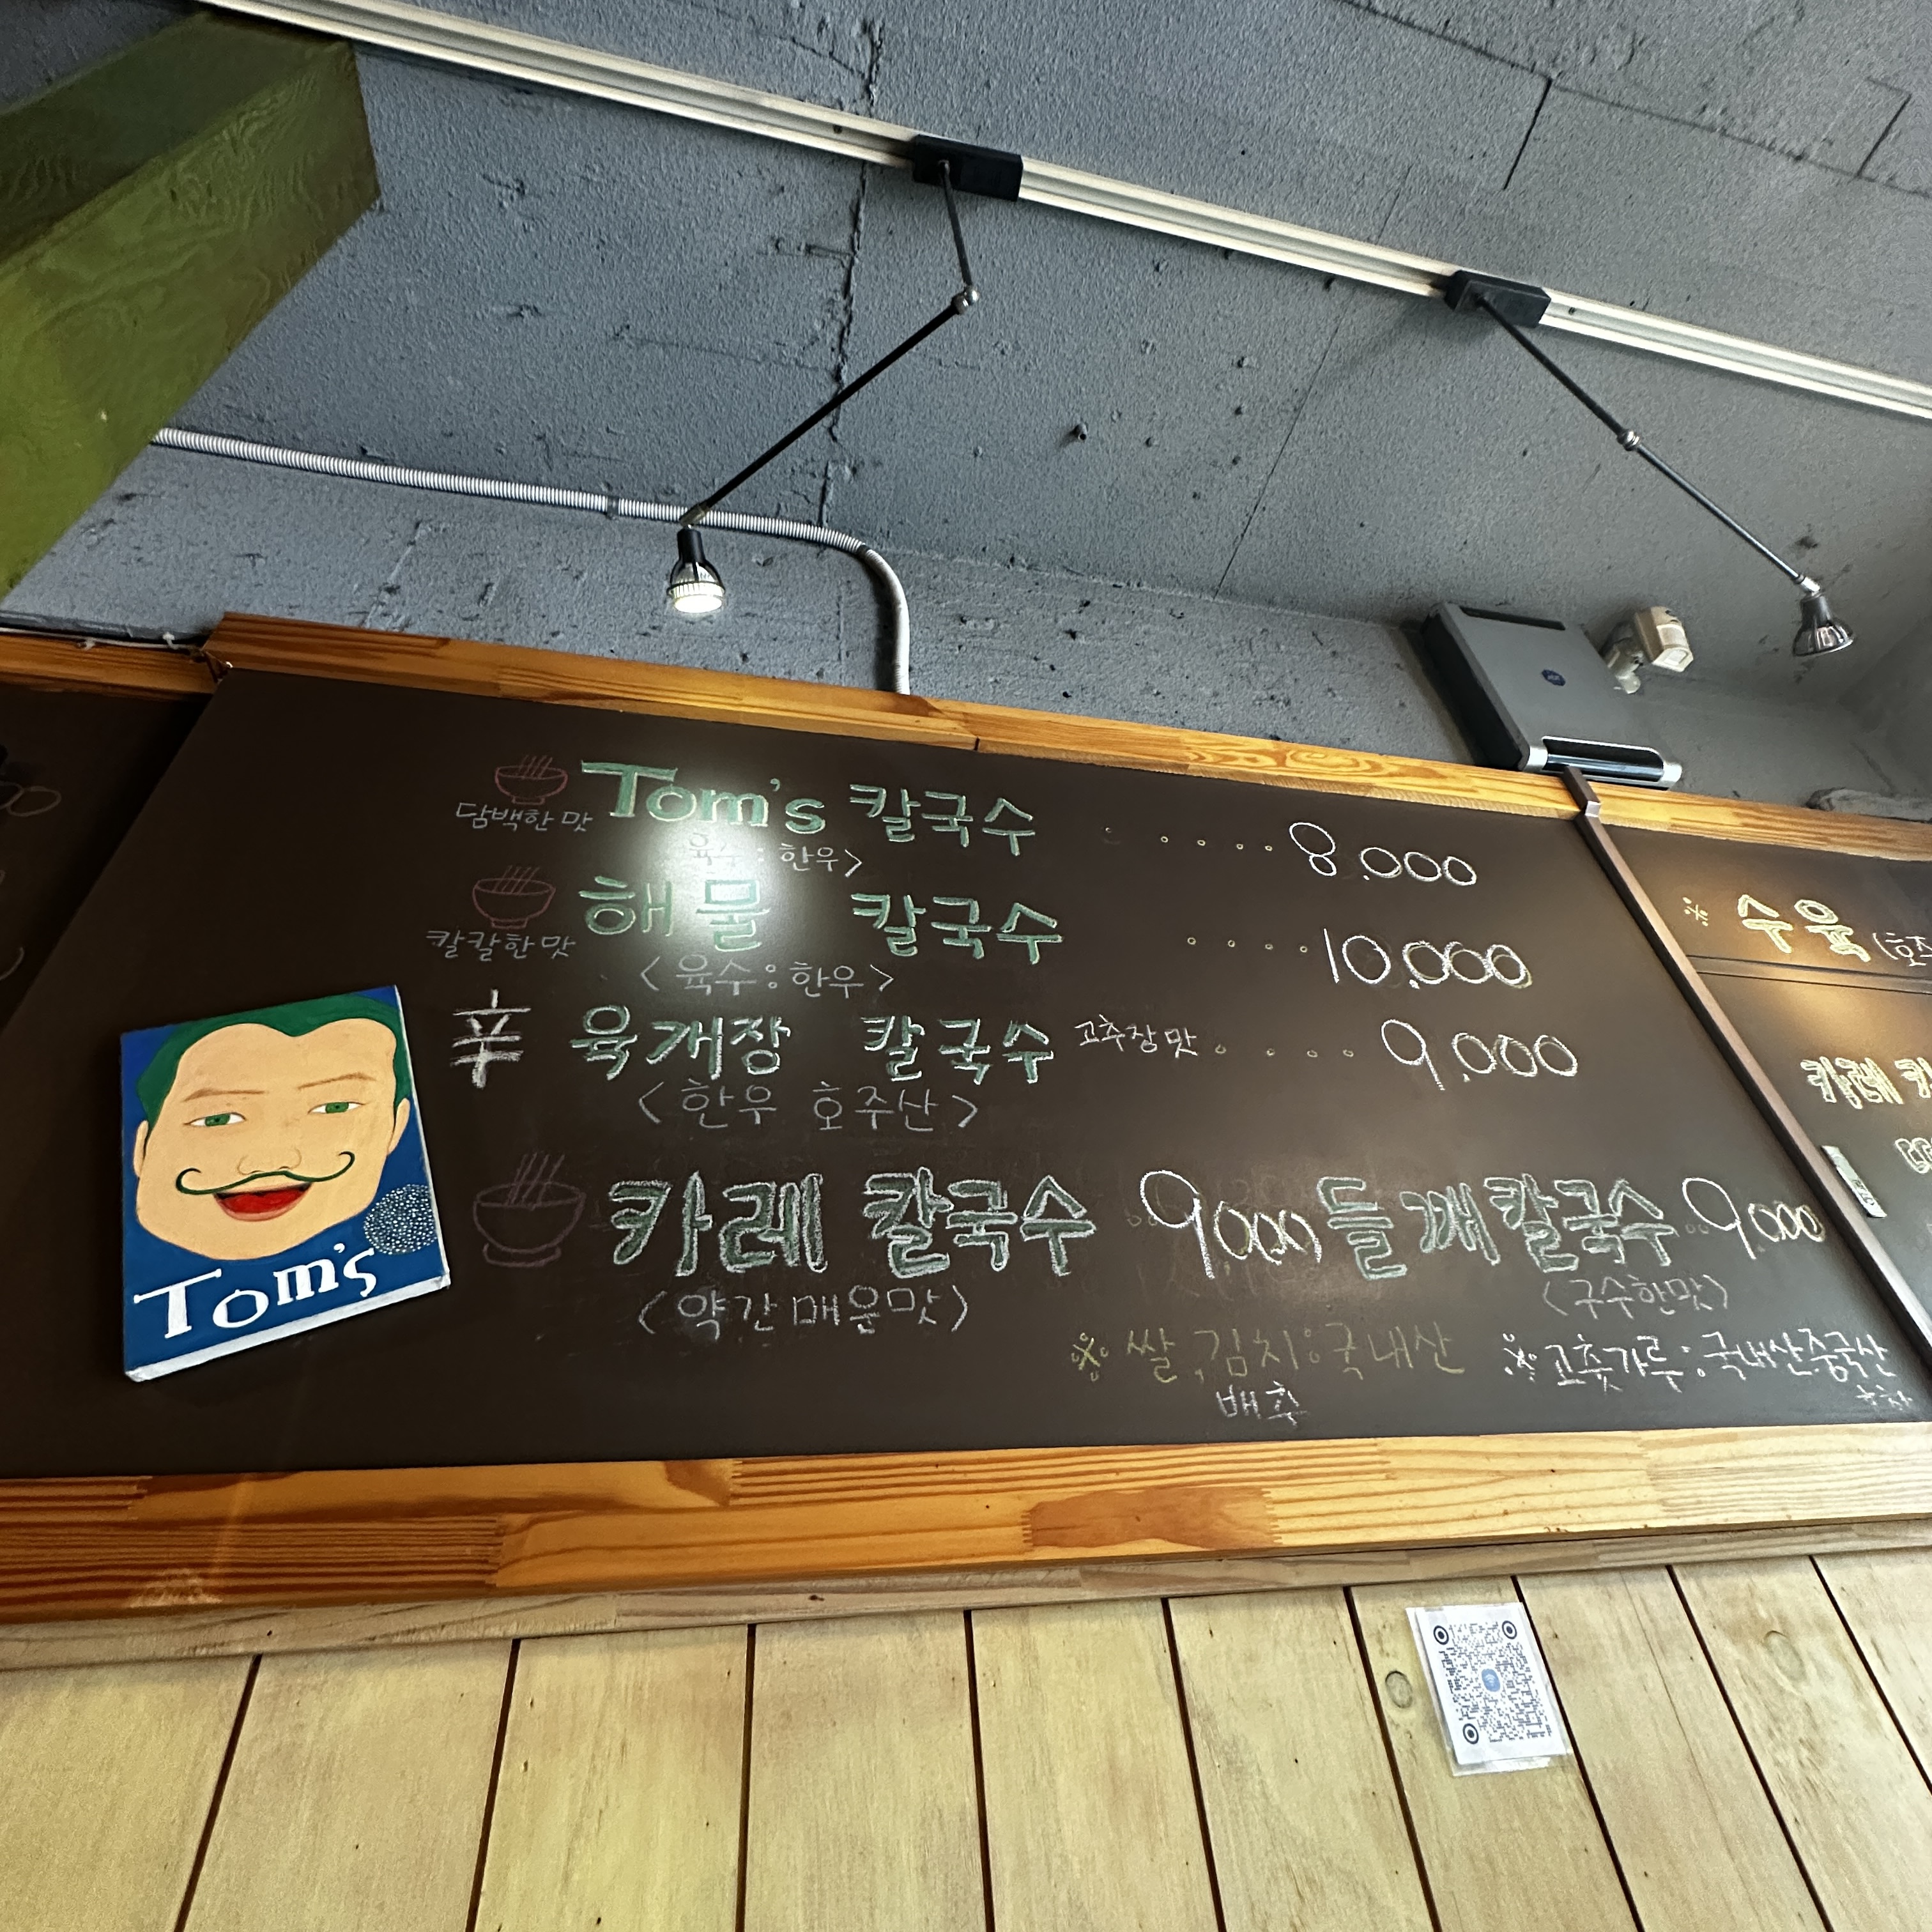 담백한 맛 Tom's 칼국수 ..... 8.000
육수 : 한우>
칼칼한 맛 해물 칼국수 .... 10.000
<육수 : 한우>
辛 육개장 칼국수 고추장 맛 .... 9.000
<한우 호주산>
카레 칼국수 .. 9.000 들깨 칼국수 .. 9.000
<약간 매운맛>
<구수한맛>
※ 쌀, 김치 : 국내산
배추
※ 고춧가루 : 국내산.중국산
Tom's
※ 수육
카레